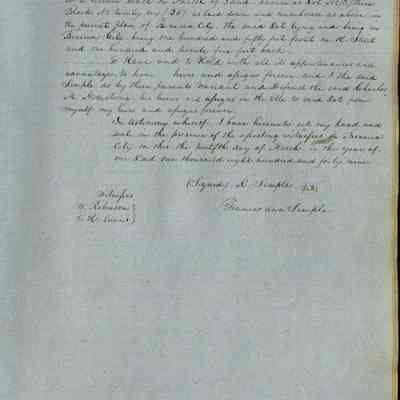 Block No twenty six (26) as laid down and numbered as above in
the private plan of Benicia City. The said Lot lying and being in
Benicia City being one hundred and fifty feet front on H Street
and one hundred and twenty five feet back.
To Have and to Hold with all its appurtenances and
advantages to him heirs and assigns forever and I the said
Semple do by these presents warrant and Defend the said Charles
heirs and assigns in the title to said Lot from
myself my heirs and assigns forever.
In testimony whereof I have hereunto set my hand and
seal in the presence of the attesting witnesses in Benicia
City on this the twelfth day of March in the year of
our Lord one thousand eight hundred and forty nine
(Signed) R. Semple
Frances Ann Semple
Witness
W. Robinson